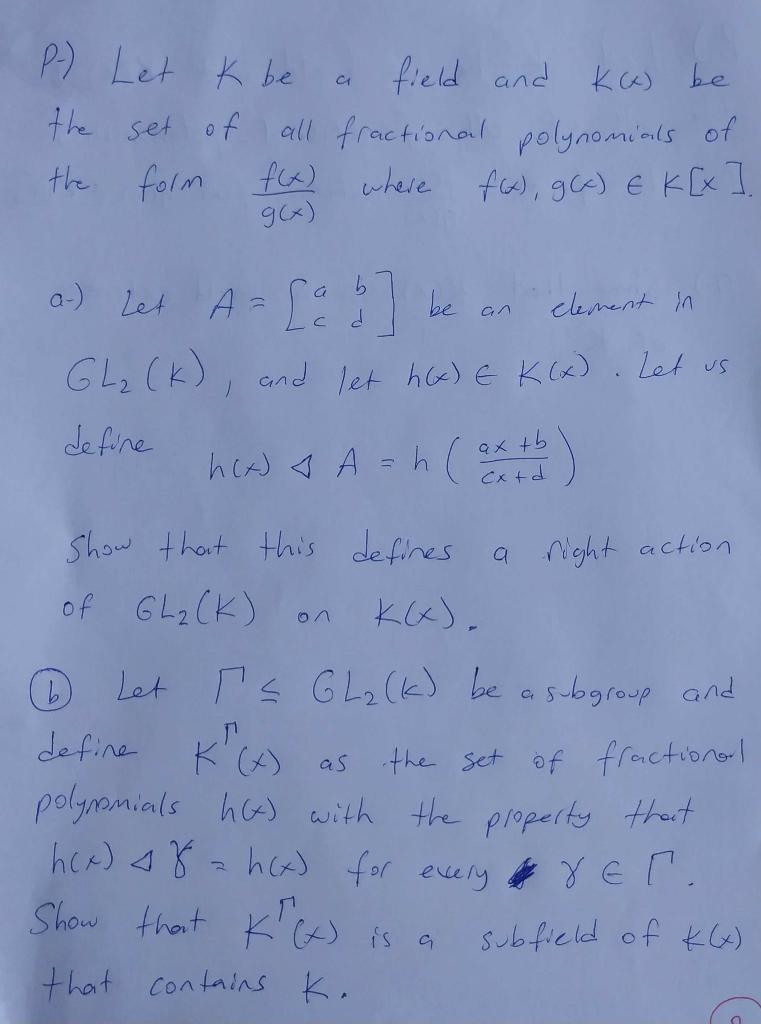 P-) Let K be a field and K(x) be
the set of all fractional polynomials of
the form f(x)/g(x) where f(x), g(x) ∈ K[x].
a-) Let A = [a b; c d] be an element in
GL₂(K), and let h(x) ∈ K(x). Let us
define
h(x) ◁ A = h((ax+b)/(cx+d))
Show that this defines a right action
of GL₂(K) on K(x).
ⓑ Let Γ ≤ GL₂(K) be a subgroup and
define K^Γ(x) as the set of fractional
polynomials h(x) with the property that
h(x) ◁ γ = h(x) for every γ ∈ Γ.
Show that K^Γ(x) is a subfield of K(x)
that contains K.